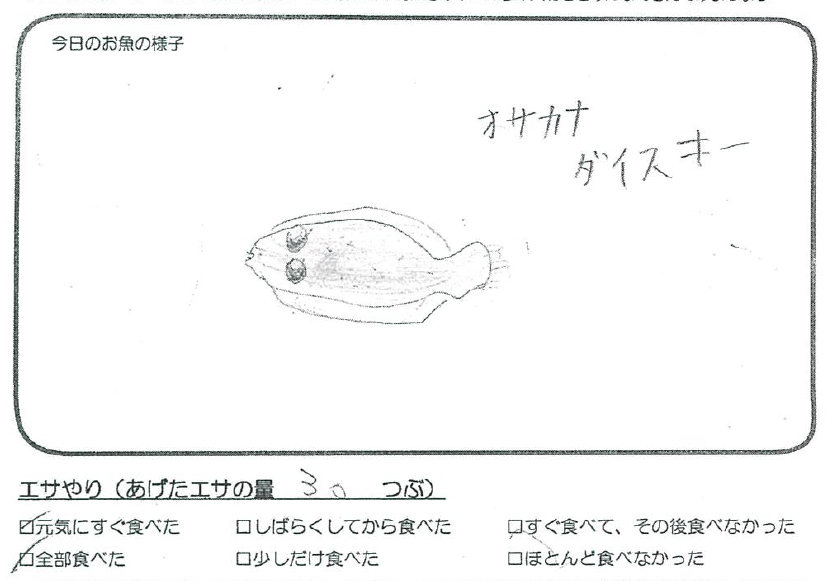 今日のお魚の様子
オサカナ
ダイスキー
エサやり（あげたエサの量 30 つぶ）
☑元気にすぐ食べた □しばらくしてから食べた □すぐ食べて、その後食べなかった
☑全部食べた □少しだけ食べた □ほとんど食べなかった